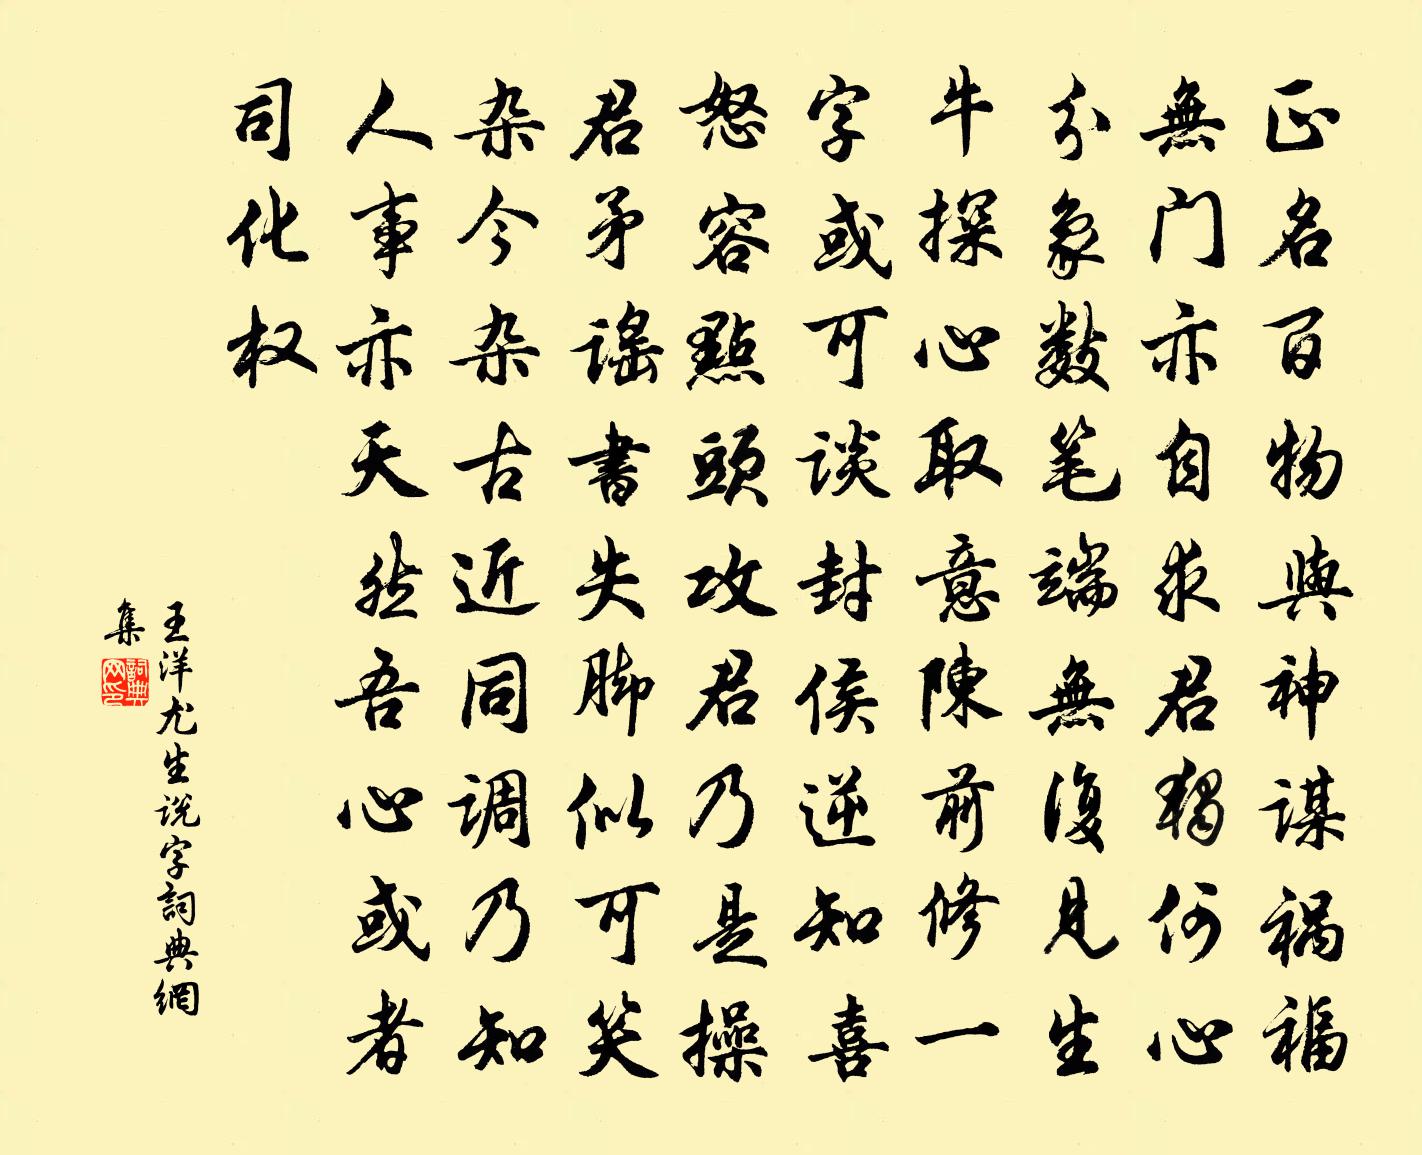 正名百物與神謀祸福
無门亦自求君獨何心
分象数笔端無復見生
牛探心取意陳前修一
字或可谈封侯逆知喜
怒容點頭攻君乃是操
君矛謡書失脚似可笑
杂今杂古近同调乃知
人事亦天然吾心或者
司化权
王洋尤生说字詞典網
集
詞典
网印